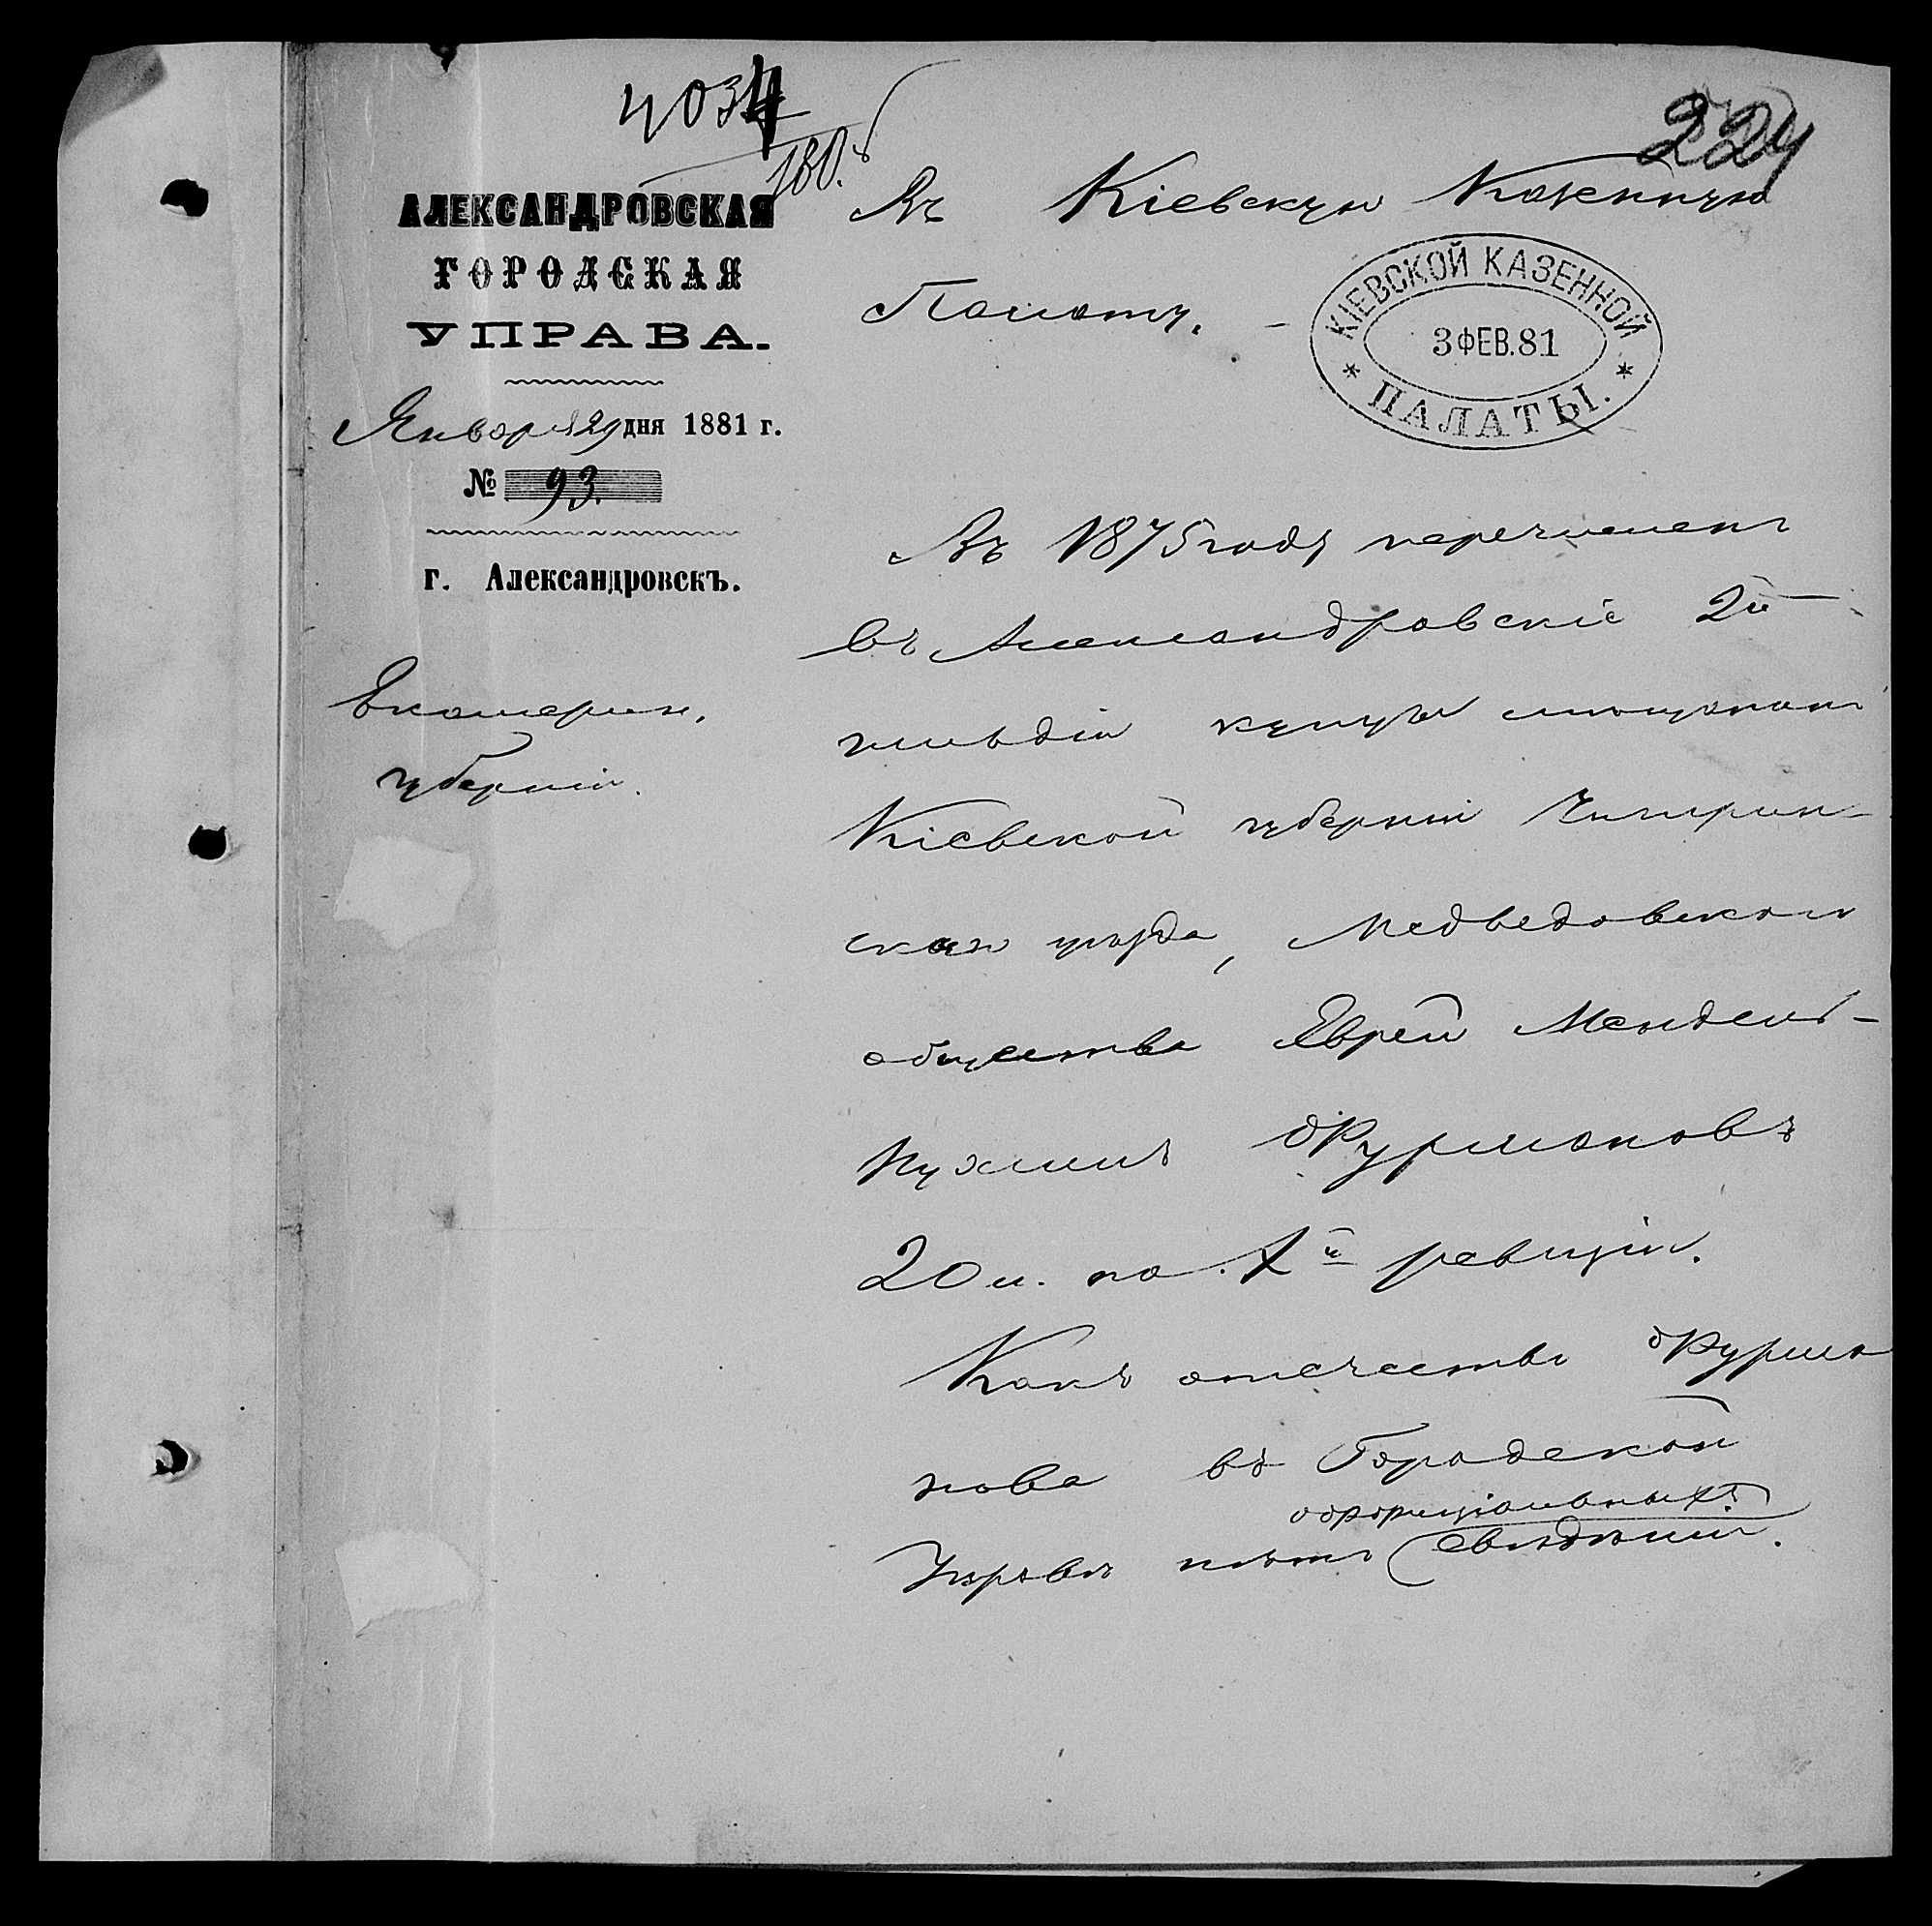 4034
180.
224
АЛЕКСАНДРОВСКАЯ
ГОРОДСКАЯ
УПРАВА.
Января 29 дня 1881 г.
№ 93.
г. Александровскъ.
Екатерин.
губерніи.
Въ Кіевскую Казенную
Палату.
КІЕВСКОЙ КАЗЕННОЙ
3 ФЕВ. 81
ПАЛАТЫ.
Въ 1875 году перечисленъ
въ Александровскіе 2й
гильдіи купцы мещанинъ
Кіевской губерніи Чигирин-
скаго уѣзда, Медведовскаго
общества Еврей Мендель-
Нухимъ Фурмановъ
20 л. по X й ревизіи.
Какъ отечество Фурма
нова въ Городской
Управѣ нѣтъ оффиціальныхъ
свѣдѣній.